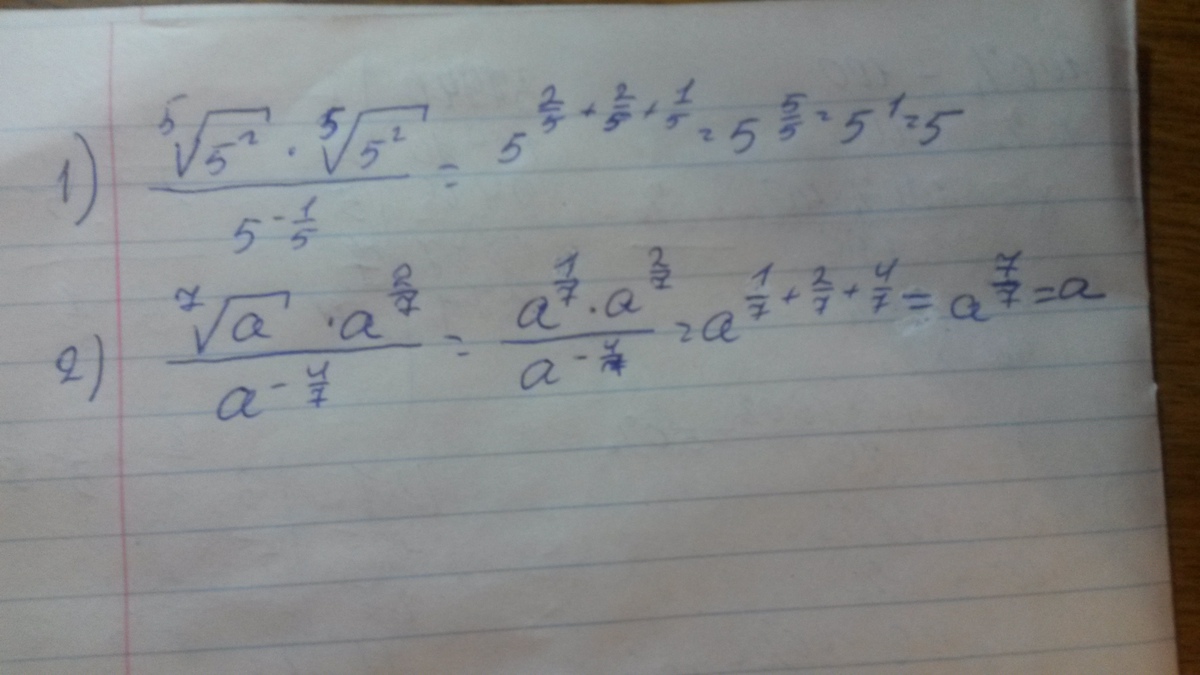 1) \frac{\sqrt[5]{5^2} \cdot \sqrt[5]{5^2}}{5^{-\frac{1}{5}}} = 5^{\frac{2}{5}+\frac{2}{5}+\frac{1}{5}} = 5^{\frac{5}{5}} = 5^1 = 5
2) \frac{\sqrt[7]{a} \cdot a^{\frac{2}{7}}}{a^{-\frac{4}{7}}} = \frac{a^{\frac{1}{7}} \cdot a^{\frac{2}{7}}}{a^{-\frac{4}{7}}} = a^{\frac{1}{7}+\frac{2}{7}+\frac{4}{7}} = a^{\frac{7}{7}} = a